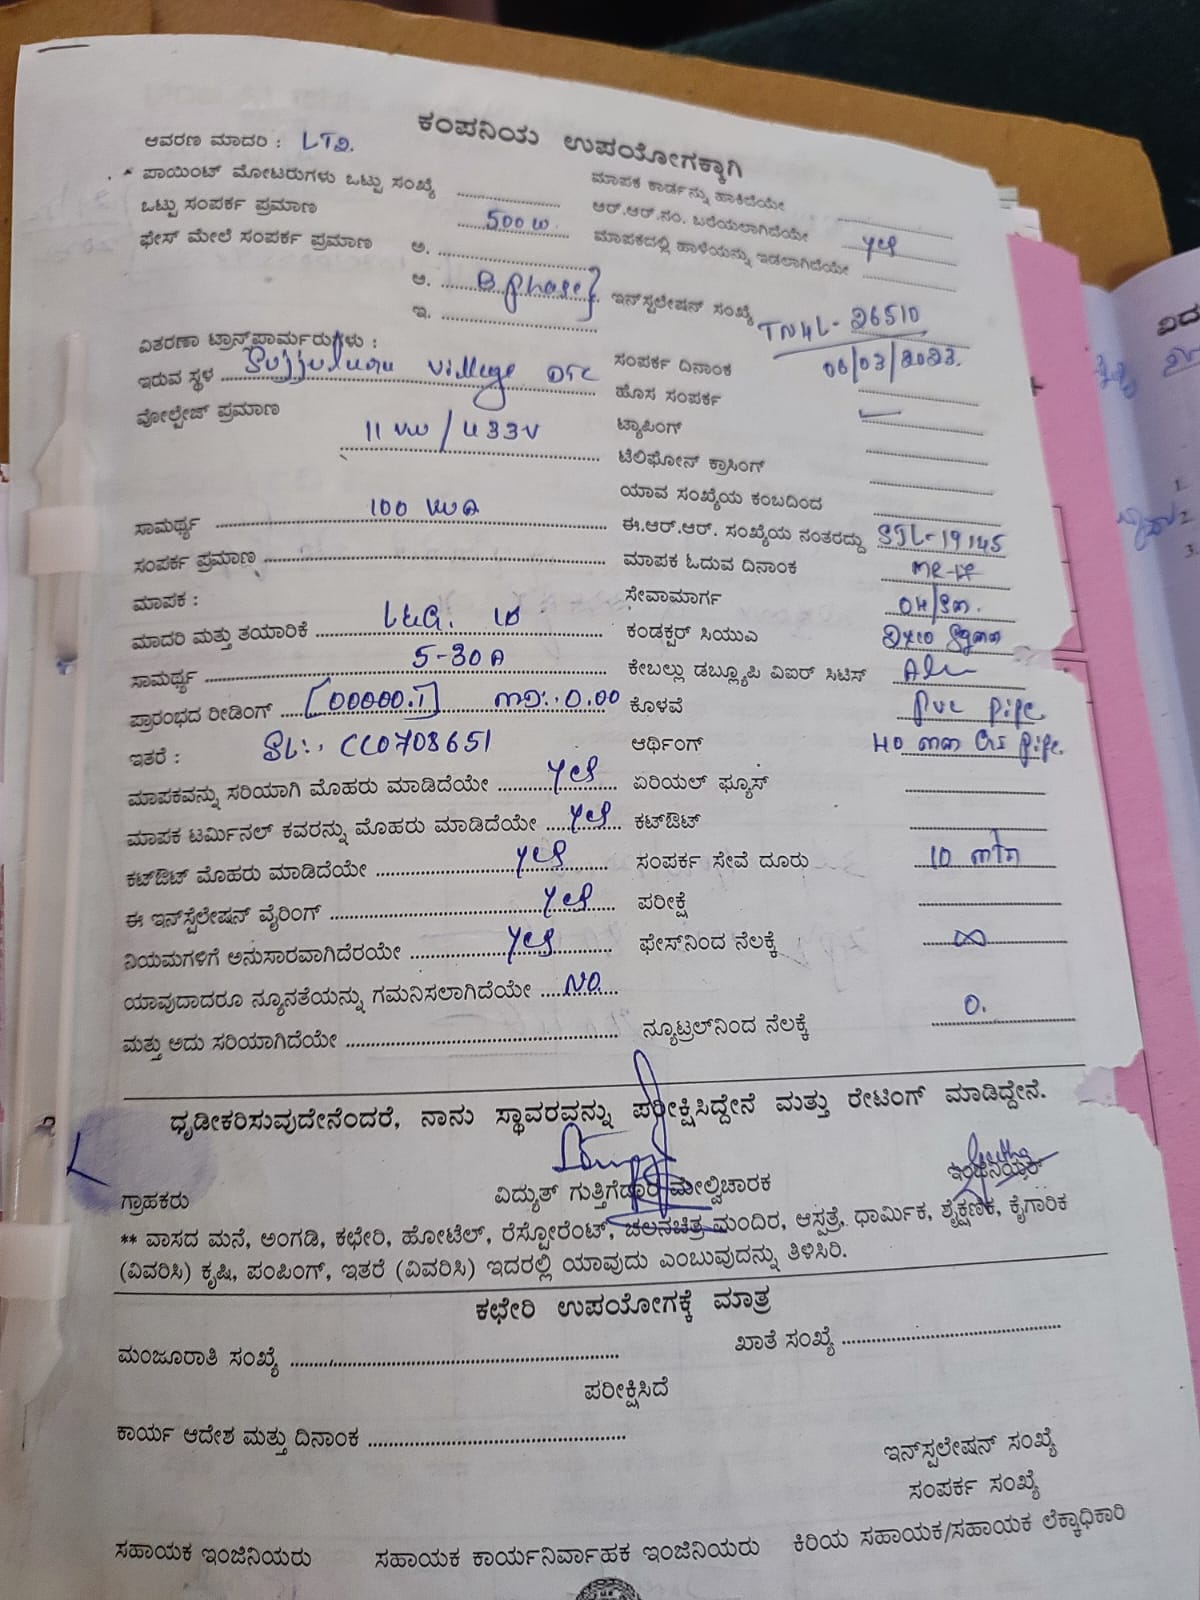 ಕಂಪನಿಯ ಉಪಯೋಗಕ್ಕಾಗಿ
ಆವರಣ ಮಾದರಿ : LT2.
ಪಾಯಿಂಟ್ ಮೋಟರುಗಳು ಒಟ್ಟು ಸಂಖ್ಯೆ
ಒಟ್ಟು ಸಂಪರ್ಕ ಪ್ರಮಾಣ 500 W.
ಫೇಸ್ ಮೇಲೆ ಸಂಪರ್ಕ ಪ್ರಮಾಣ ಅ.
ಆ. B phase
ಇ.
ವಿತರಣಾ ಟ್ರಾನ್ಸ್‌ಫಾರ್ಮರುಗಳು :
ಇರುವ ಸ್ಥಳ Village DTC
ವೋಲ್ಟೇಜ್ ಪ್ರಮಾಣ
11 KV / 433V
ಸಾಮರ್ಥ್ಯ 100 KVA
ಸಂಪರ್ಕ ಪ್ರಮಾಣ
ಮಾಪಕ :
ಮಾದರಿ ಮತ್ತು ತಯಾರಿಕೆ L&G.
ಸಾಮರ್ಥ್ಯ 5-30A
ಪ್ರಾರಂಭದ ರೀಡಿಂಗ್ [00000.1] MD:. 0.00
ಇತರೆ : SL:. CC0708651
ಮಾಪಕವನ್ನು ಸರಿಯಾಗಿ ಮೊಹರು ಮಾಡಿದೆಯೇ yes
ಮಾಪಕ ಟರ್ಮಿನಲ್ ಕವರನ್ನು ಮೊಹರು ಮಾಡಿದೆಯೇ yes
ಕಟ್‌ಔಟ್ ಮೊಹರು ಮಾಡಿದೆಯೇ yes
ಈ ಇನ್‌ಸ್ಟೆಲೇಷನ್ ವೈರಿಂಗ್ yes
ನಿಯಮಗಳಿಗೆ ಅನುಸಾರವಾಗಿದೆರಯೇ yes
ಯಾವುದಾದರೂ ನ್ಯೂನತೆಯನ್ನು ಗಮನಿಸಲಾಗಿದೆಯೇ NO.
ಮತ್ತು ಅದು ಸರಿಯಾಗಿದೆಯೇ
ಮಾಪಕ ಕಾರ್ಡನ್ನು ಹಾಕಿದೆಯೇ
ಆರ್.ಆರ್.ನಂ. ಬರೆಯಲಾಗಿದೆಯೇ yes
ಮಾಪಕದಲ್ಲಿ ಹಾಳೆಯನ್ನು ಇಡಲಾಗಿದೆಯೇ
ಇನ್‌ಸ್ಟಲೇಷನ್ ಸಂಖ್ಯೆ TN4L-26510
ಸಂಪರ್ಕ ದಿನಾಂಕ 06/03/2023.
ಹೊಸ ಸಂಪರ್ಕ
ಟ್ಯಾಪಿಂಗ್
ಟೆಲಿಫೋನ್ ಕ್ರಾಸಿಂಗ್
ಯಾವ ಸಂಖ್ಯೆಯ ಕಂಬದಿಂದ
ಈ.ಆರ್.ಆರ್. ಸಂಖ್ಯೆಯ ನಂತರದ್ದು SJL-19145
ಮಾಪಕ ಓದುವ ದಿನಾಂಕ
ಸೇವಾಮಾರ್ಗ
ಕಂಡಕ್ಟರ್ ಸಿಯುಎ
ಕೇಬಲ್ಲು ಡಬ್ಲ್ಯೂಪಿ ವಿಐರ್ ಸಿಟಿಸ್
ಕೊಳವೆ PVC pipe
ಆರ್ಥಿಂಗ್ 40 mm GI pipe.
ಏರಿಯಲ್ ಫ್ಯೂಸ್
ಕಟ್‌ಔಟ್
ಸಂಪರ್ಕ ಸೇವೆ ದೂರು 10 mtr
ಪರೀಕ್ಷೆ
ಫೇಸ್‌ನಿಂದ ನೆಲಕ್ಕೆ ∞
ನ್ಯೂಟ್ರಲ್‌ನಿಂದ ನೆಲಕ್ಕೆ 0.
ಧೃಡೀಕರಿಸುವುದೇನೆಂದರೆ, ನಾನು ಸ್ಥಾವರವನ್ನು ಪರೀಕ್ಷಿಸಿದ್ದೇನೆ ಮತ್ತು ರೇಟಿಂಗ್ ಮಾಡಿದ್ದೇನೆ.
ಗ್ರಾಹಕರು ವಿದ್ಯುತ್ ಗುತ್ತಿಗೆದಾರ ಮೇಲ್ವಿಚಾರಕ ಇಂಜಿನಿಯರ್
** ವಾಸದ ಮನೆ, ಅಂಗಡಿ, ಕಛೇರಿ, ಹೋಟೆಲ್, ರೆಸ್ಟೋರೆಂಟ್, ಚಲನಚಿತ್ರ ಮಂದಿರ, ಆಸ್ಪತ್ರೆ, ಧಾರ್ಮಿಕ, ಶೈಕ್ಷಣಿಕ, ಕೈಗಾರಿಕ
(ವಿವರಿಸಿ) ಕೃಷಿ, ಪಂಪಿಂಗ್, ಇತರೆ (ವಿವರಿಸಿ) ಇದರಲ್ಲಿ ಯಾವುದು ಎಂಬುವುದನ್ನು ತಿಳಿಸಿರಿ.
ಕಛೇರಿ ಉಪಯೋಗಕ್ಕೆ ಮಾತ್ರ
ಮಂಜೂರಾತಿ ಸಂಖ್ಯೆ ಖಾತೆ ಸಂಖ್ಯೆ
ಪರೀಕ್ಷಿಸಿದೆ
ಕಾರ್ಯ ಆದೇಶ ಮತ್ತು ದಿನಾಂಕ
ಇನ್‌ಸ್ಟಲೇಷನ್ ಸಂಖ್ಯೆ
ಸಂಪರ್ಕ ಸಂಖ್ಯೆ
ಸಹಾಯಕ ಇಂಜಿನಿಯರು ಸಹಾಯಕ ಕಾರ್ಯನಿರ್ವಾಹಕ ಇಂಜಿನಿಯರು ಕಿರಿಯ ಸಹಾಯಕ/ಸಹಾಯಕ ಲೆಕ್ಕಾಧಿಕಾರಿ